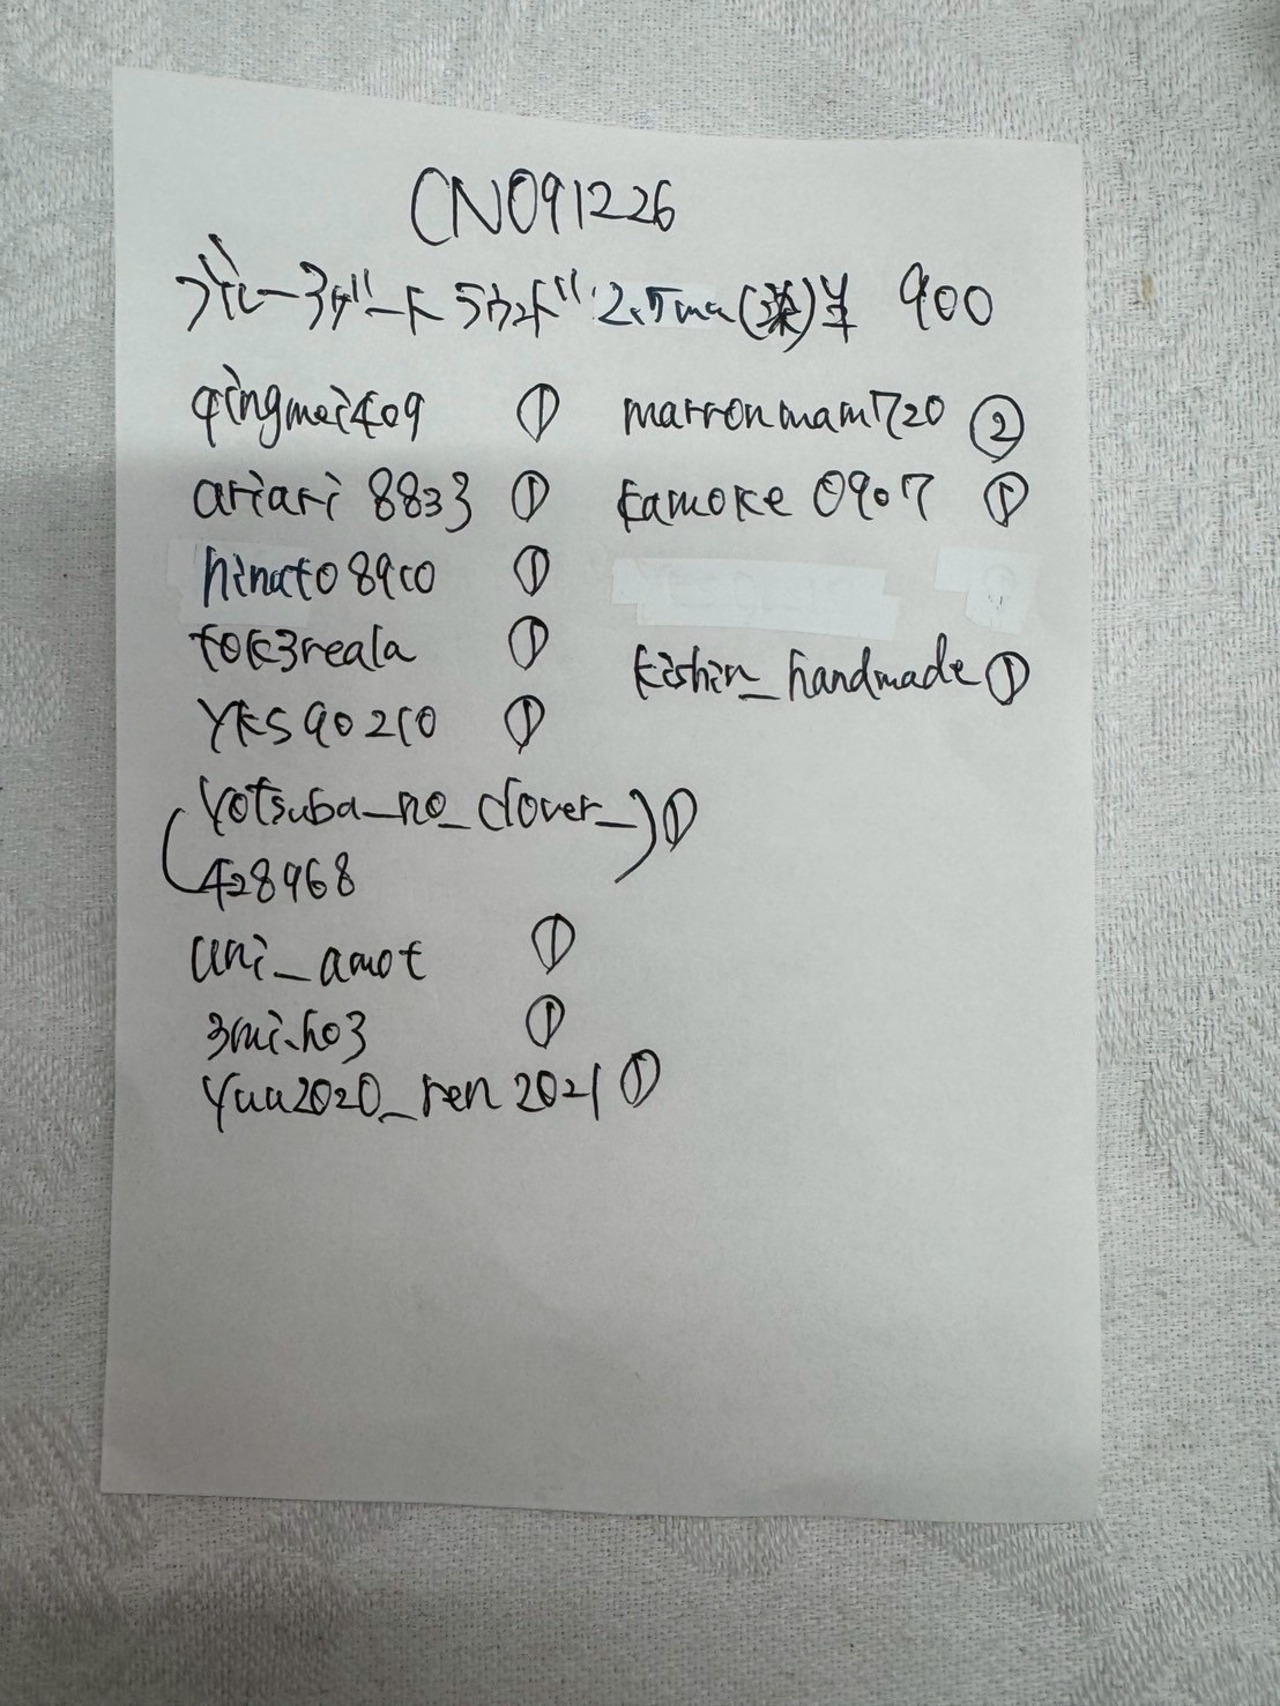 CN091226
ブルーヨゲート ラウンド 2.5mm(染)¥ 900
qingmei409 ①
ariari 8833 ①
hinato8910 ①
tok3reala ①
YKS90210 ①
(yotsuba_no_clover_
428968) ①
uni_amot ①
3mi.ho3 ①
yuu2020_ren2021 ①
marronmam720 ②
kamoke 0907 ①
kishin_handmade ①